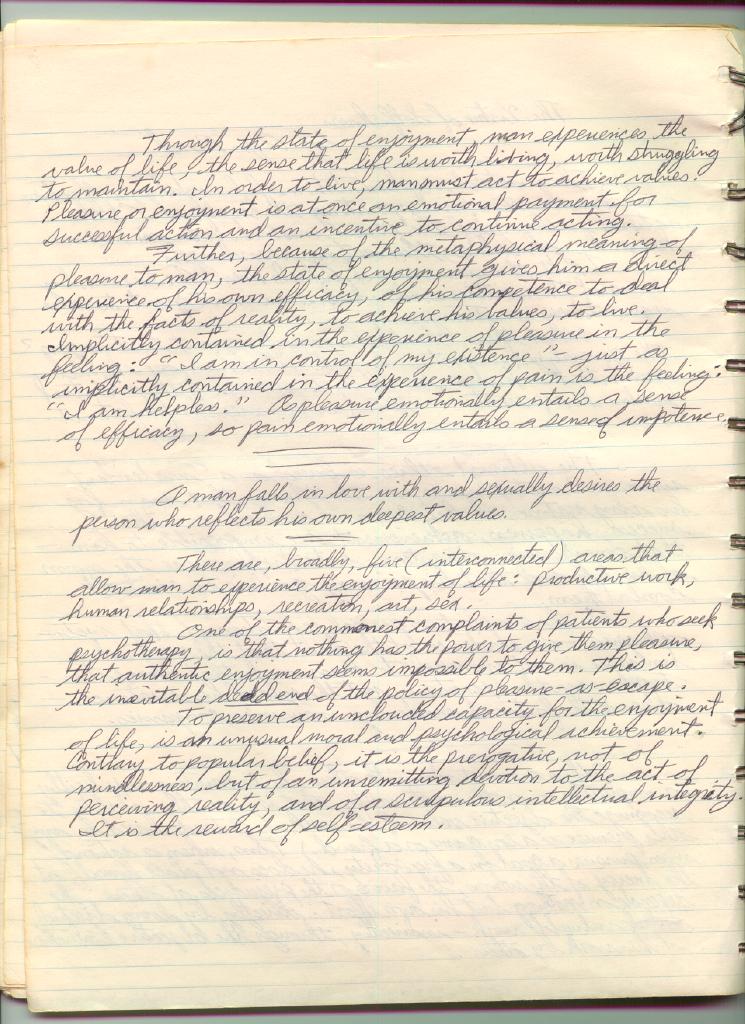 Through the state of enjoyment, man experiences the
value of life, the sense that life is worth living, worth struggling
to maintain. In order to live, man must act to achieve values.
Pleasure or enjoyment is at once an emotional payment for
successful action and an incentive to continue acting.
Further, because of the metaphysical meaning of
pleasure to man, the state of enjoyment gives him a direct
experience of his own efficacy, of his competence to deal
with the facts of reality, to achieve his values, to live.
Implicitly contained in the experience of pleasure in the
feeling: "I am in control of my existence" - just as
implicitly contained in the experience of pain is the feeling:
"I am helpless." As pleasure emotionally entails a sense
of efficacy, so pain emotionally entails a sense of impotence.
A man falls in love with and sexually desires the
person who reflects his own deepest values.
There are, broadly, five (interconnected) areas that
allow man to experience the enjoyment of life: productive work,
human relationships, recreation, art, sex.
One of the commonest complaints of patients who seek
psychotherapy is that nothing has the power to give them pleasure,
that authentic enjoyment seems impossible to them. This is
the inevitable dead end of the policy of pleasure-as-escape.
To preserve an unclouded capacity for the enjoyment
of life, is an unusual moral and psychological achievement.
Contrary to popular belief, it is the prerogative, not of
mindlessness, but of an unremitting devotion to the act of
perceiving reality, and of a scrupulous intellectual integrity.
It is the reward of self-esteem.